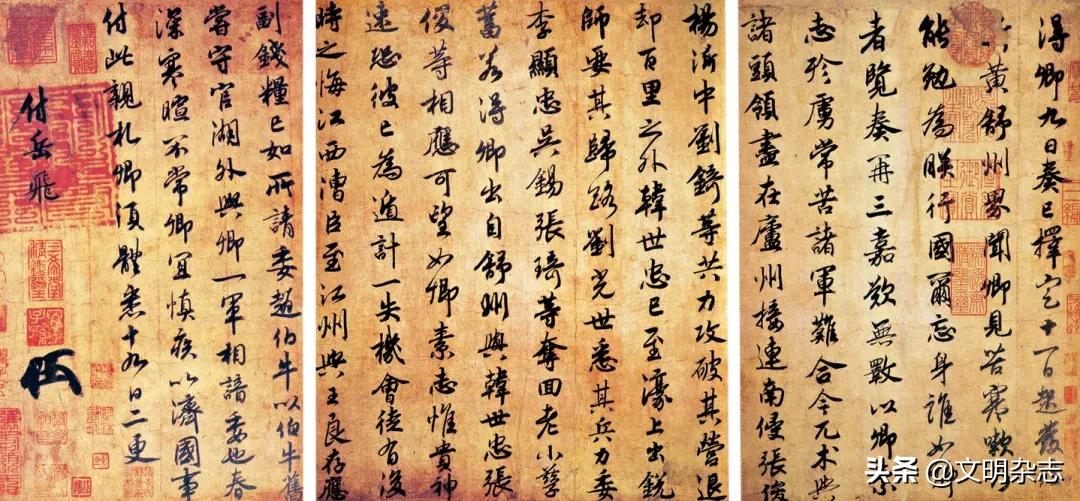 得卿九日奏已擇定十一日起發
黃舒州界聞卿見苦寒嗽
能勉為朕行國爾忘身誰如
者覽奏再三嘉歎無斁以卿
志殄虜常苦諸軍難合今兀术與
諸頭領盡在廬州接連南侵張俊
楊沂中劉錡等共力攻破其營退
却百里之外韓世忠已至濠上出銳
師要其歸路劉光世悉其兵力委
李顯忠吳錫張琦等奪回老小孳
畜若得卿出自舒州與韓世忠張
俊等相應可望如卿素志惟貴神
速恐彼已為遁計一失機會徒有後
時之悔江西漕臣至江州與王良存應
副錢糧已如所請委趙伯牛以伯牛舊
嘗守官湖外與卿一軍相諳委也春
深寒暄不常卿宜慎疾以濟國事
付此親札卿須體悉十九日二更
付岳飛
头条 @文明杂志